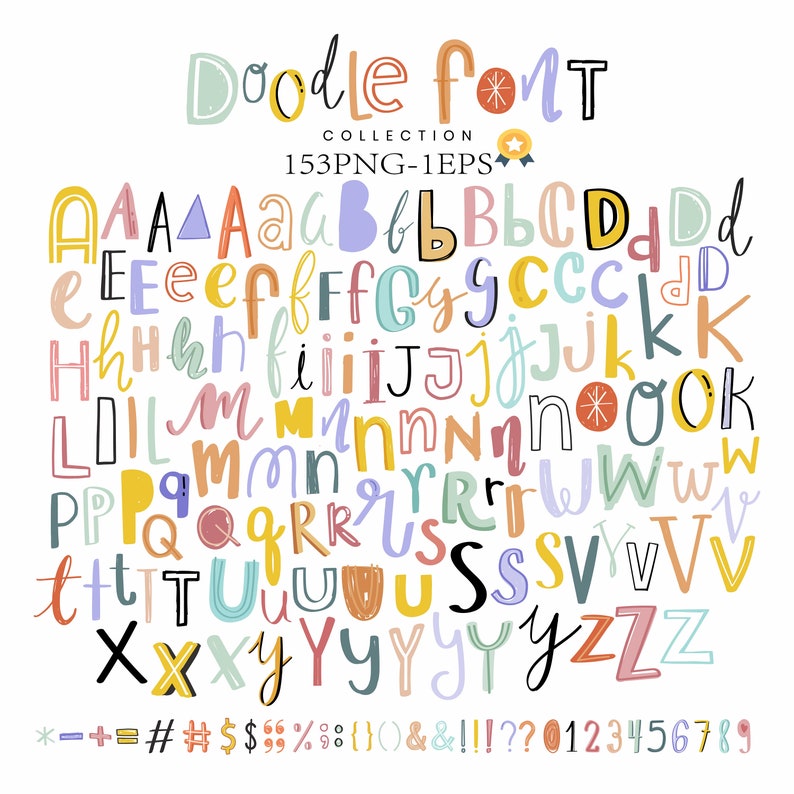 Doodle font
COLLECTION
153PNG-1EPS
A A A A A a a B b b B B b C c D D d D D d
e E E e e e f f f F f G g g g c C C c d d D
H h H h h h f i i i I J J j j j J J k k K
L I I L m M n n n N n n O O O K
P P P P q M m n n r r R r r W W W w w
Q Q q R R r s S S s S V Y V V V v v
t t t I T T U u U U U u
X X X X y Y y Y y Y y z Z Z Z
* - + = # # $ $ ; ; % ; : { } ( ) & & ! ! ! ? ? 0 1 2 3 4 5 6 7 8 9